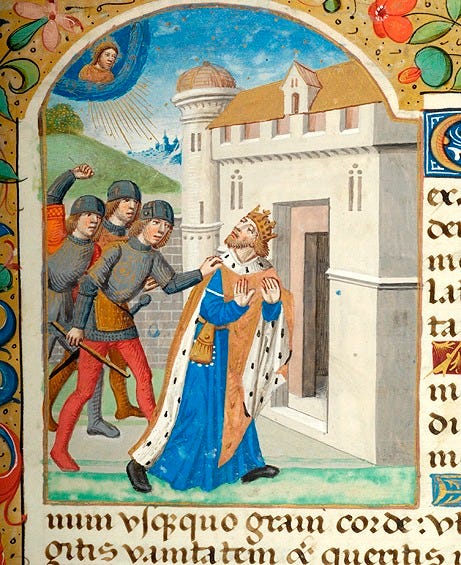 C
ex
de
me
lat
ta
m
di
m
num vsqꝫquo graui corde: vt
gitis vanitatem & queritis